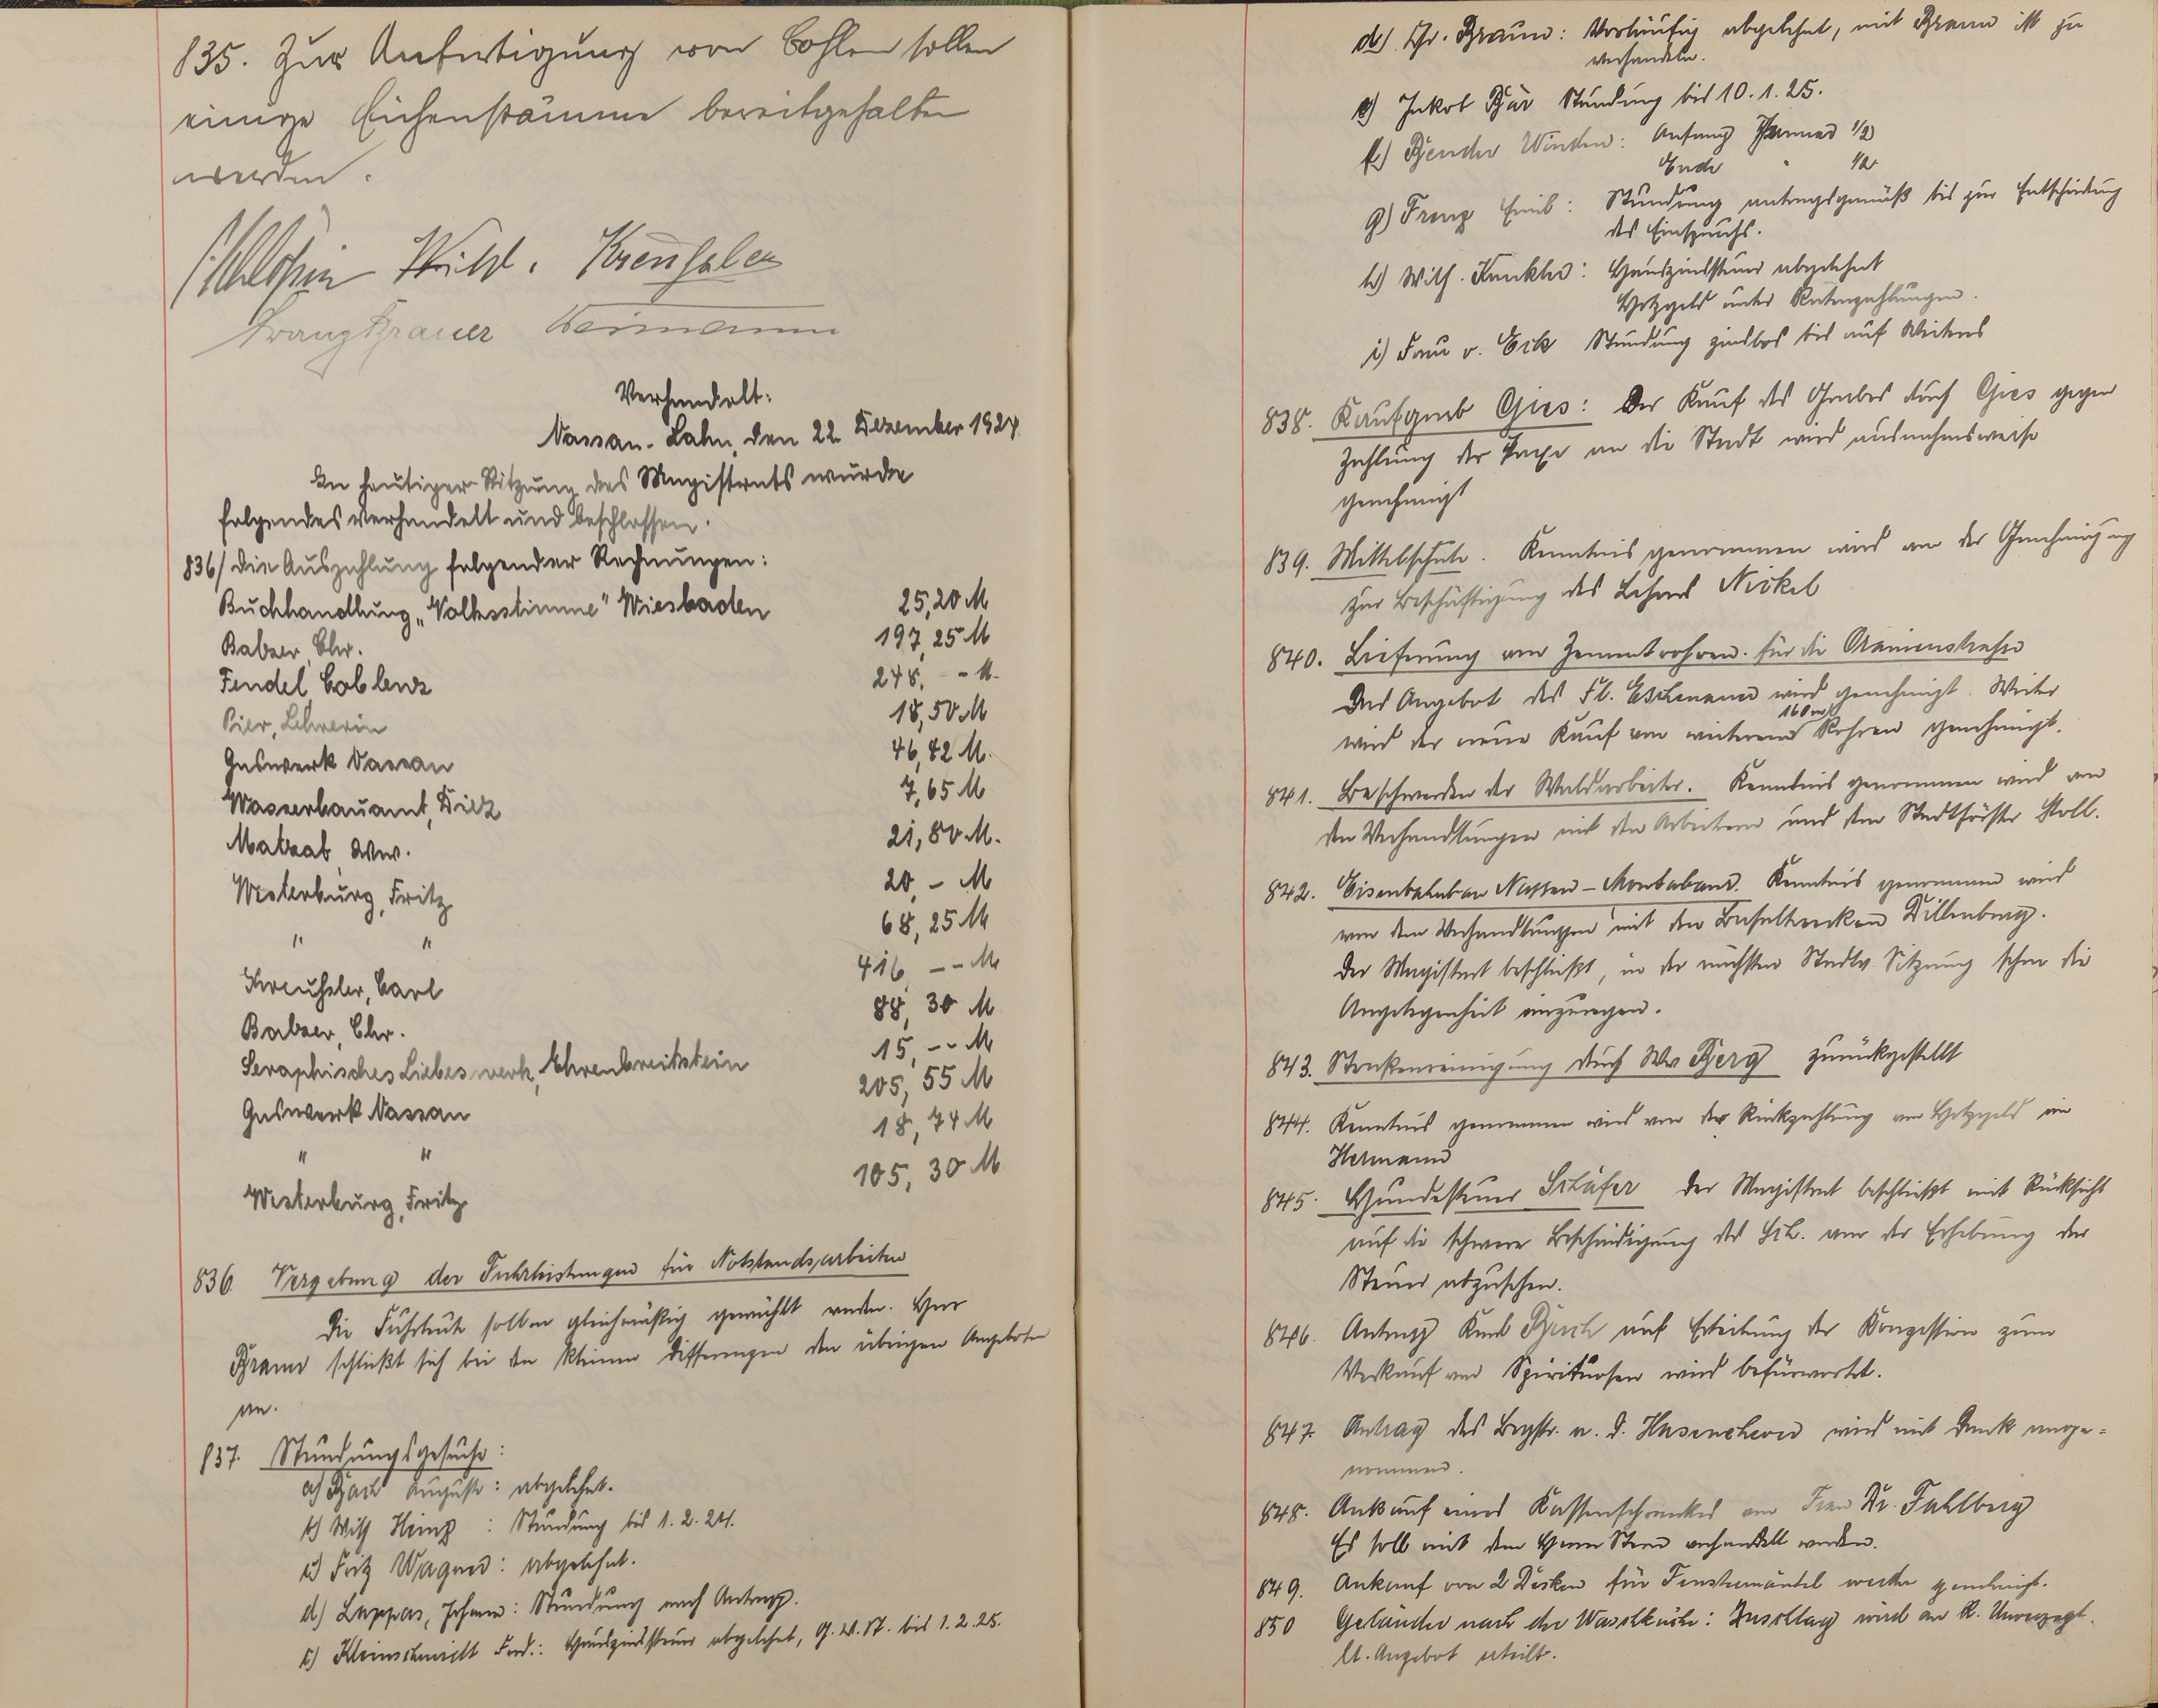 835. Zur Anfertigung von Bohlen sollen
einige Eichenstämme bereitgehalten
werden.
Wild.
Franz Brauer
Verhandelt:
Nassau-Lahn, den 22. Dezember 1924.
In heutiger Sitzung des Magistrats wurde
folgendes verhandelt und beschlossen.
836/ die Auszahlung folgender Rechnungen:
Buchhandlung „Volksstimme" Wiesbaden 25,20 M
Balzer, Chr. 197,25 M
Fendel, Coblenz 248, -- M.
Pier, Lehrerin 18,50 M
Gaswerk Nassau 46,42 M.
Wasserbauamt, Diez 7,65 M
Ww. 21,80 M.
Westerburg, Fritz 20,- M
" " 68,25 M
Kreußler, Carl 416, -- M
Balzer, Chr. 88,30 M
Seraphisches Liebeswerk, Ehrenbreitstein 15, -- M
Gaswerk Nassau 205,55 M
" " 18,74 M
Westerburg, Fritz 105,30 M
836 Vergebung der Fuhrleistungen für Notstandsarbeiten
Die Fuhrleute sollen gleichmäßig gewählt werden. Herr
Braun schließt sich bei den kleinen Differenzen den übrigen Angeboten
an.
837. Stundungsgesuche:
a) Bach Auguste: abgelehnt.
b) Wilh Heinz : Stundung bis 1.2.24.
c) Fritz Wagner: abgelehnt.
d) Lappas, Johann: Stundung nach Antrag.
c) Kleinschmidt Ferd.: Hauszinssteuer abgelehnt, G.W.St. bis 1.2.25.
d) Chr. Braun: Vorläufig abgelehnt, mit Braun ist zu
verhandeln.
e) Jakob Bär Stundung bis 10.1.25.
f) Bender Winden: Anfang Januar 1/2
Ende " 1/2
g) Franz Emil: Stundung antragsgemäß bis zur Entscheidung
des Einspruchs.
h) Wilh. Kunkler: Hauszinssteuer abgelehnt
Holzgeld unter Ratenzahlungen.
i) Frau v. Eck Stundung zinslos bis auf Weiteres
838. Kaufgrab Gies: Der Kauf des Grabes durch Gies gegen
Zahlung der Taxe an die Stadt wird ausnahmsweise
genehmigt
839. Mittelschule. Kenntnis genommen wird von der Genehmigung
zur Beschäftigung des Lehrers Nickel
840. Lieferung von Zementrohren für die Arnimstraße
Das Angebot des Fb. Eschenauer wird genehmigt. Weiter
wird der neue Kauf von weiteren 160 m Rohren genehmigt.
841. Beschwerden der Waldarbeiter. Kenntnis genommen wird von
den Verhandlungen mit den Arbeitern und dem Stadtförster Stoll.
842. Eisenbahnbau Nassau-Montabaur. Kenntnis genommen wird
von den Verhandlungen mit den Basaltwerken Dillenburg.
Der Magistrat beschließt, in der nächsten Stadtv. Sitzung schon die
Angelegenheit anzuregen.
843. Straßenreinigung durch Ww Berg zurückgestellt
844. Kenntnis genommen wird von der Rückzahlung von Holzgeld an
Hermann
845. Hundesteuer Schäfer Der Magistrat beschließt mit Rücksicht
auf die schwere Beschädigung des Sch. von der Erhebung der
Steuer abzusehen.
846. Antrag Karl Busch auf Erteilung der Konzession zum
Verkauf von Spirituosen wird befürwortet.
847. Antrag des Bergstr. a. D. Hasenclever wird mit Dank ange=
nommen.
848. Ankauf eines Kassenschrankes von Frau Dr. Fahlberg
Es soll mit dem Herrn Stern verhandelt werden.
849. Ankauf von 2 Decken für Fenstermäntel werden genehmigt.
850 Geländer nach der Waschküche: Zuschlag wird an R. Unverzagt
lt. Angebot erteilt.